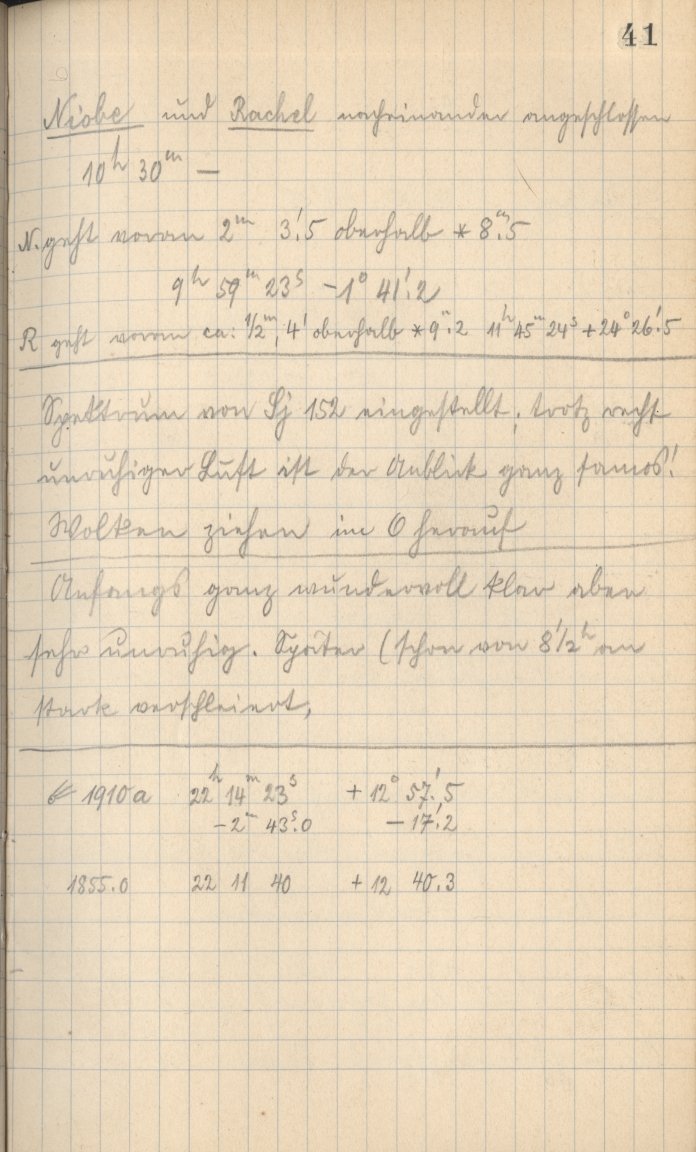 41
Niobe und Rachel nacheinander angeschlossen
10ʰ 30ᵐ —
N. geht voran 2ᵐ 3'.5 oberhalb * 8ᵐ.5
9ʰ 59ᵐ 23ˢ −1° 41'.2
R geht voran ca: 1/2ᵐ, 4' oberhalb * 9ᵐ.2 11ʰ 45ᵐ 24ˢ +24° 26'.5
Spektrum von Sj 152 eingestellt, trotz recht
unruhiger Luft ist der Anblick ganz famos!
Wolken ziehen im O herauf
Anfangs ganz wundervoll klar aber
sehr unruhig. Später (schon von 8 1/2ʰ an
stark verschleiert,
☄ 1910a 22ʰ 14ᵐ 23ˢ + 12° 57'.5
−2ᵐ 43ˢ.0 −17'.2
1855.0 22 11 40 + 12 40.3